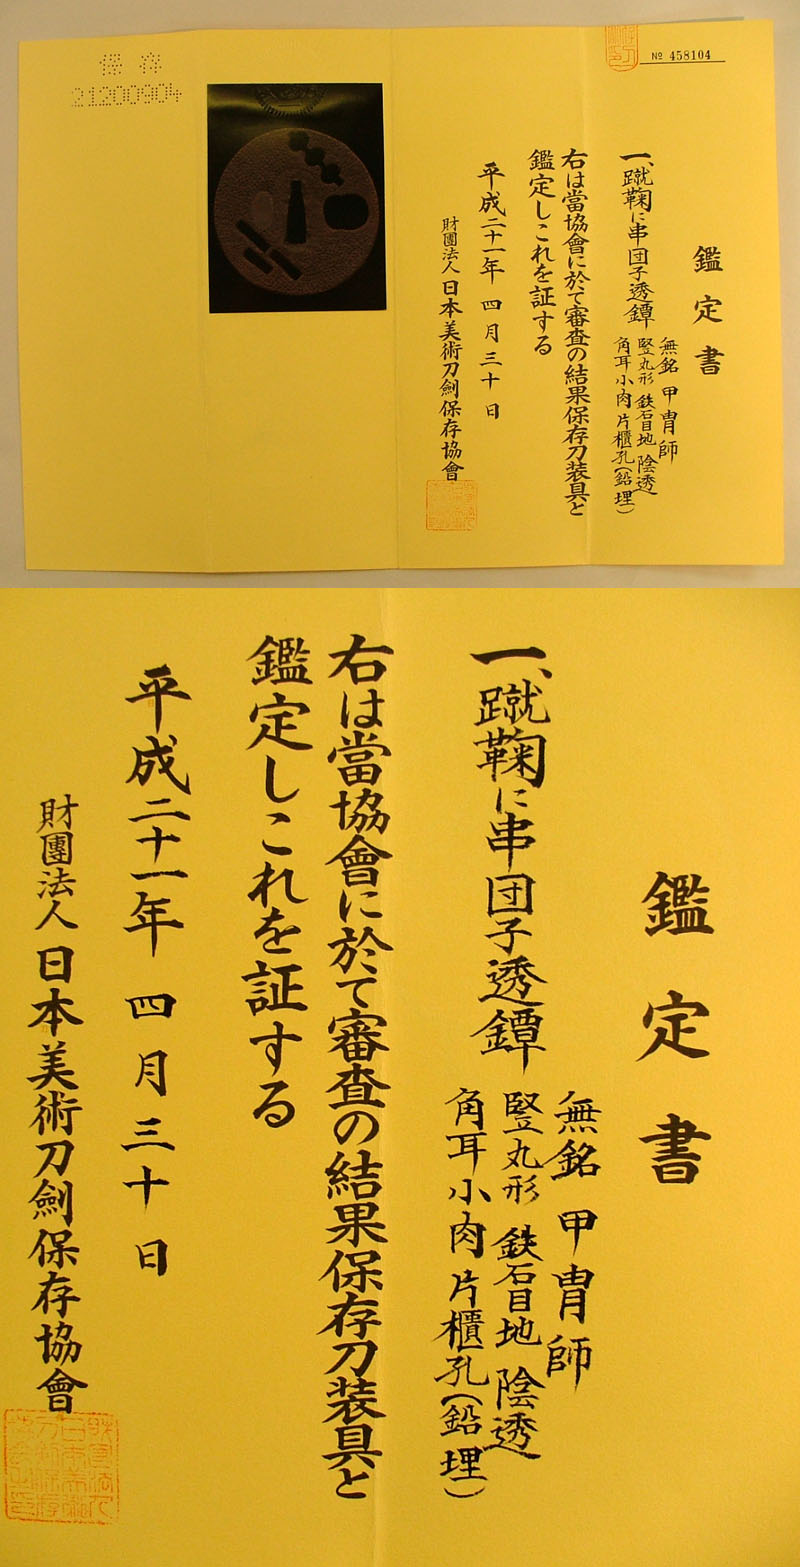 保存
21200904
№ 458104
鑑定書
一、蹴鞠に串団子透鐔
無銘 甲冑師
竪丸形 鉄石目地 陰透
角耳小肉 片櫃孔(鉛埋)
右は當協會に於て審査の結果保存刀装具と
鑑定しこれを証する
平成二十一年 四月三十日
財團法人 日本美術刀劍保存協會
鑑定書
一、蹴鞠に串団子透鐔
無銘 甲冑師
竪丸形 鉄石目地 陰透
角耳小肉 片櫃孔(鉛埋)
右は當協會に於て審査の結果保存刀装具と
鑑定しこれを証する
平成二十一年 四月三十日
財團法人 日本美術刀劍保存協會